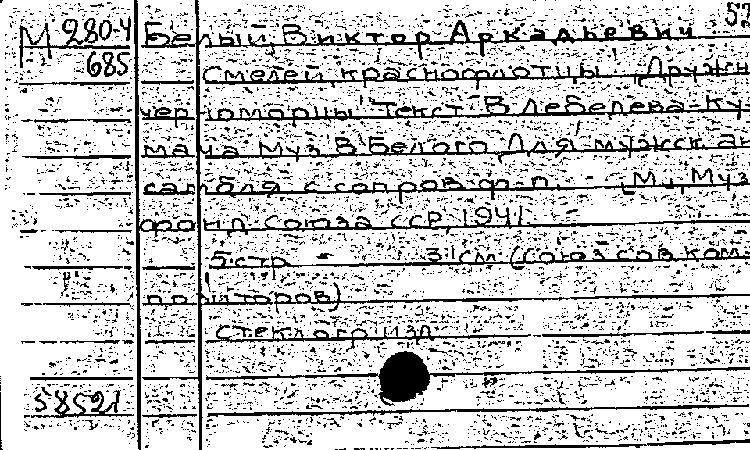 М 280-4 Белый, Виктор Аркадьевич 52
685 Смелей, краснофлотцы! Дружн
черноморцы! Текст В. Лебедева-Ку-
мача Муз. В. Белого Для мужск. ан
самбля с сопров. ф-п. - [М.], Муз
фонд Союза ССР, 1941. -
5 стр. - 31 см (Союз сов. ком-
позиторов)
Стеклогр. изд.
58521